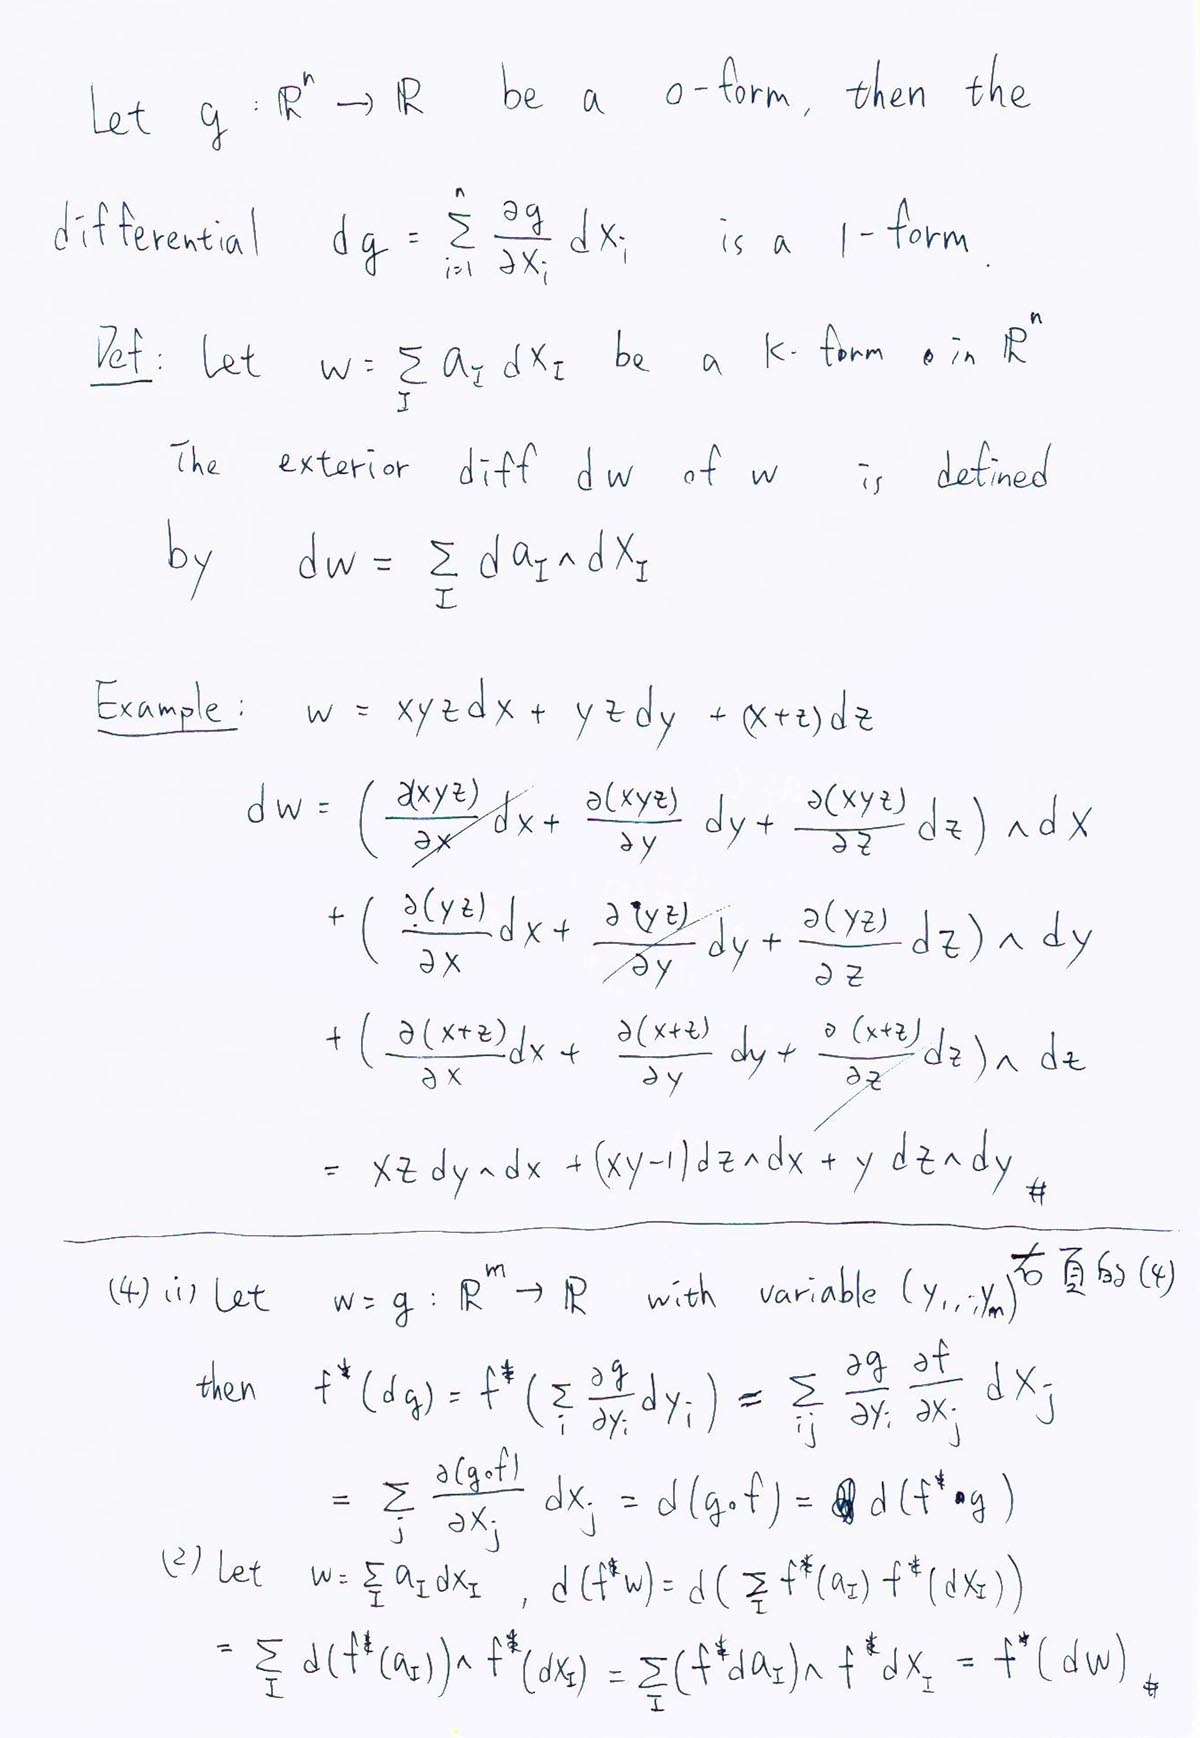 Let g : ℝⁿ → ℝ be a 0-form, then the
differential dg = ∑_{i=1}^{n} ∂g/∂x_i dx_i is a 1-form.
Def: Let w = ∑_I a_I dx_I be a k-form in ℝⁿ
The exterior diff dw of w is defined
by dw = ∑_I da_I ∧ dx_I
Example: w = xyzdx + yzdy + (x+z)dz
dw = (∂(xyz)/∂x dx + ∂(xyz)/∂y dy + ∂(xyz)/∂z dz) ∧ dx
+ (∂(yz)/∂x dx + ∂(yz)/∂y dy + ∂(yz)/∂z dz) ∧ dy
+ (∂(x+z)/∂x dx + ∂(x+z)/∂y dy + ∂(x+z)/∂z dz) ∧ dz
= xz dy∧dx + (xy-1)dz∧dx + y dz∧dy #
(4) (i) Let w = g : ℝᵐ → ℝ with variable (y₁,..,y_m) 右頁的(4)
then f*(dg) = f*(∑_i ∂g/∂y_i dy_i) = ∑_{ij} ∂g/∂y_i ∂f/∂x_j dx_j
= ∑_j ∂(g∘f)/∂x_j dx_j = d(g∘f) = d(f*∘g)
(2) Let w = ∑_I a_I dx_I , d(f*w) = d(∑_I f*(a_I) f*(dx_I))
= ∑_I d(f*(a_I)) ∧ f*(dx_I) = ∑_I (f*da_I) ∧ f*dx_I = f*(dw) #